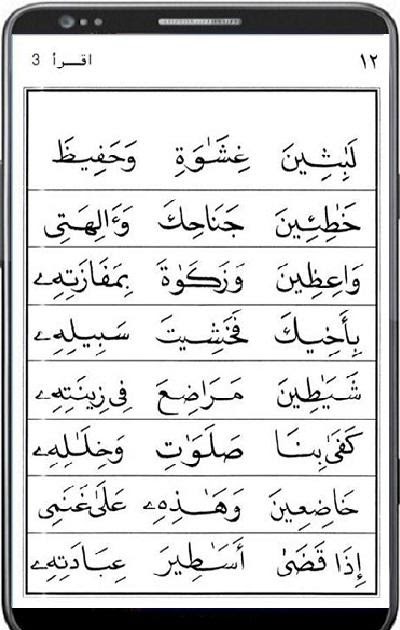 اقـرأ 3 ١٢
لَٰبِثِينَ غِشَٰوَةٍ وَحَفِيظَ
خَٰطِئِينَ جَنَاحِكَ وَءَالِهَتِى
وَاعِظِينَ وَزَكَوٰةَ بِمَفَازَتِهِۦ
بِأَخِيكَ فَخَشِيتَ سَبِيلِهِۦ
شَيَٰطِينَ مَرَاضِعَ فِى زِينَتِهِۦ
كَفَىٰ بِنَا صَلَوَٰتِ وَخِلَٰلِهِۦ
خَاضِعِينَ وَهَٰذِهِۦ عَلَىٰ غَنَمِى
إِذَا قَضَىٰ أَسَٰطِيرَ عِبَادَتِهِۦ